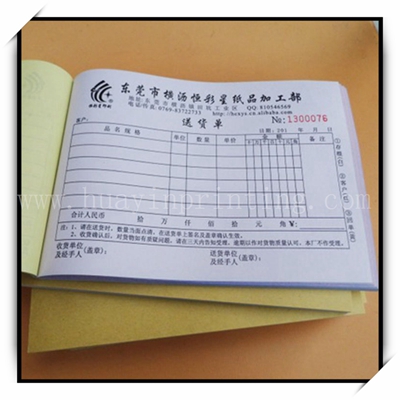 东莞市横沥恒彩星纸品加工部
地址:东莞市横沥镇田坑工业区 QQ:810546560
电话/传真:0769-83722733 http://hcxys.cn.alibaba.com
送货单
№:1300076
客户: 日期:201 年 月 日
品名规格 单位 数量 单价 金额 备注
合计人民币 拾 万 仟 佰 拾 元 角 ¥:
注:1、请在送货时,数量当面点清,在送货单上签名及盖章确认生效。
2、收货确认后,对货物如有质量问题,请在三天内告知受理,逾期以作对货物质量认可,本厂不作受理。
收货单位
及经手人(盖章):
送货单位
及经手人(盖章):
www.huayinprinting.com